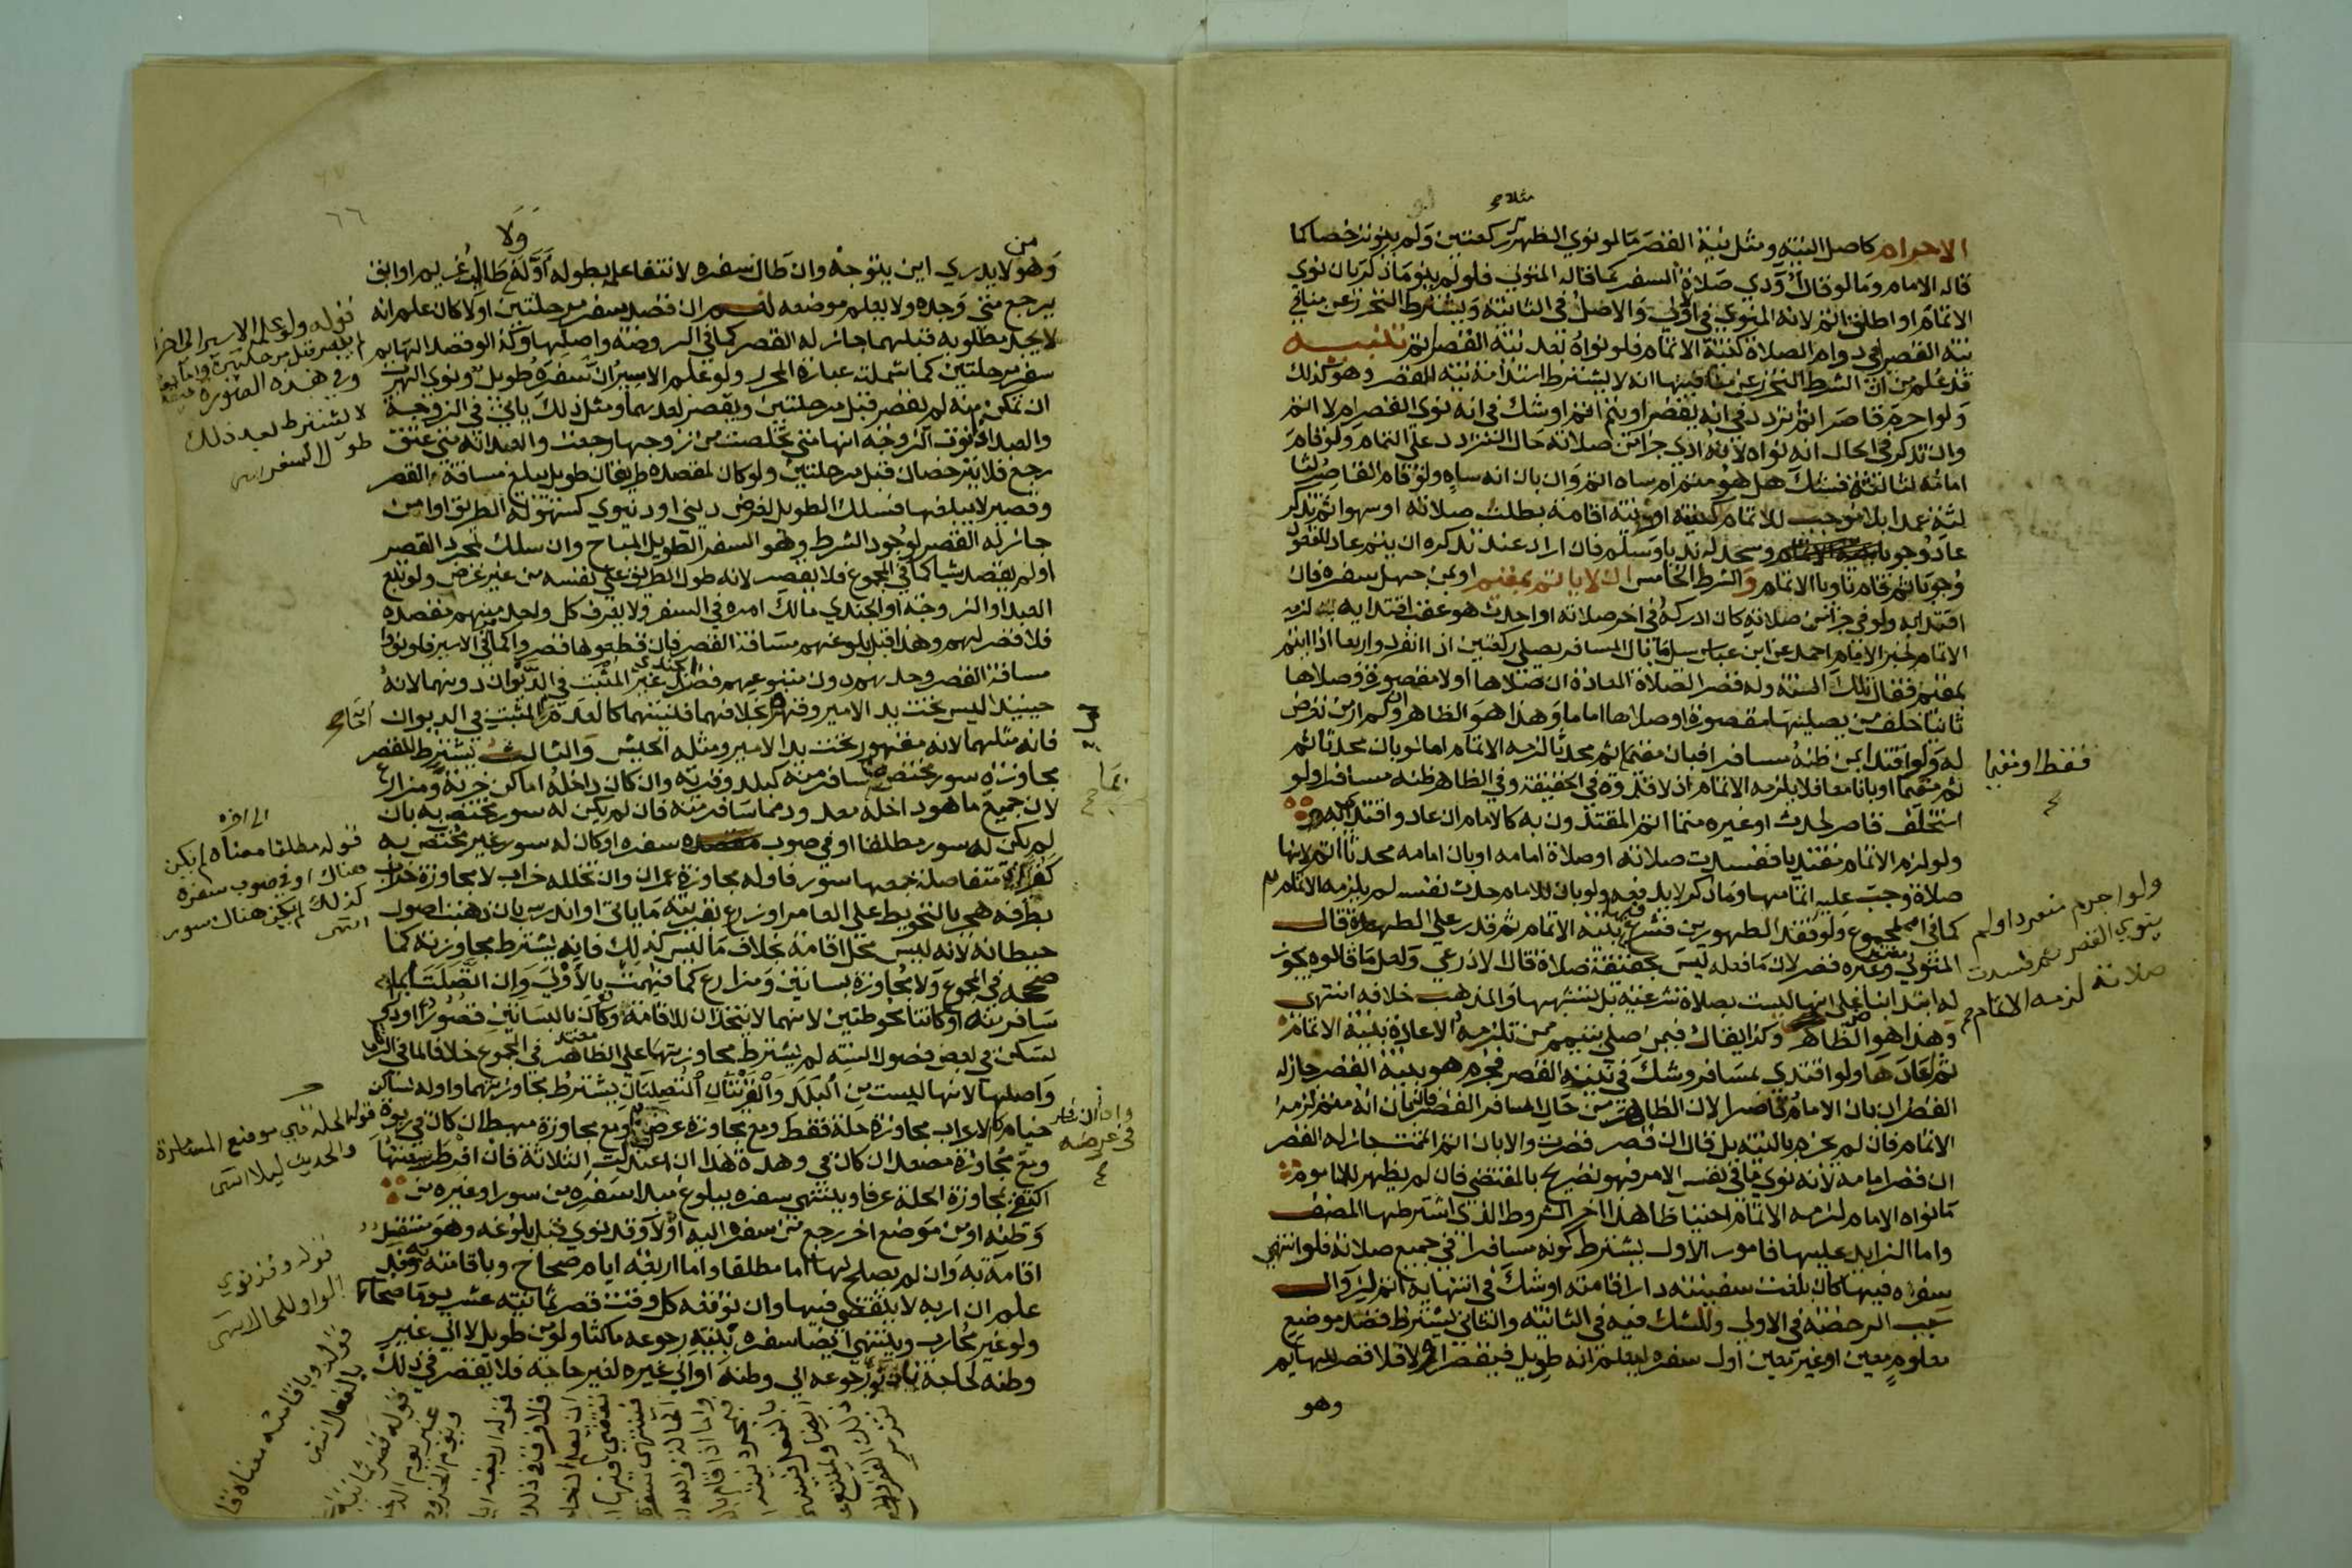 مثلا صح
الاحرام كاصل النية ومثل نية القصر ما لو نوي الظهر ركعتين ولم ينو ترخصا كما
قاله الامام وما لو قال أودي صلاة السفر كما قاله المتولي فلو لم ينو ما ذكر بان نوي
الاتمام او اطلق اتم لانه المنوي في الاولي والاصل في الثانية ويشترط التحرز عن منافي
نية القصر في دوام الصلاة كنية الاتمام فلو نواه بعد نية القصر اتم تنبيه
قد علم من ان الشرط التحرز عن منافيها انه لا يشترط استدامة نية القصر وهو كذلك
ولو احرم قاصرا ثم تردد في انه يقصر او يتم اتم او شك في انه نوي القصر ام لا اتم
وان تذكر في الحال انه نواه لانه ادي جزا من صلاته حال التردد علي التمام ولو قام
امامه لثالثة فشك هل هو متم ام ساه اتم وان بان انه ساه ولو قام القاصر لثا
لثة عمدا بلا موجب للاتمام كنيته او نية اقامة بطلت صلاته او سهوا ثم تذكر
عاد وجوبا وسجد له ندبا وسلم فان اراد عند تذكره ان يتم عاد للقعود
وجوبا ثم قام ناويا الاتمام والشرط الخامس ان لا ياتم بمقيم او بمن جهل سفره فان
اقتدي به ولو في جزا من صلاته كان ادركه في اخر صلاته او احدث هو عقب اقتدايه به لزمه
الاتمام لخبر الامام احمد عن ابن عباس سئل ما بال المسافر يصلي ركعتين اذا انفرد واربعا اذا ايتم
بمقيم فقال تلك السنة وله قصر الصلاة المعادة ان صلاها اولا مقصورة وصلاها
ثانيا خلف من يصليها مقصورة او صلاها اماما وهذا هو الظاهر وان لم ار من تعرض
له ولو اقتدي بمن ظنه مسافرا فبان مقيما ثم محدثا لزمه الاتمام اما لو بان محدثا ثم
ثم مقيما او بانا معا فلا يلزمه الاتمام اذ لا قدوة في الحقيقة وفي الظاهر ظنه مسافرا ولو
استخلف قاصر لحدث او غيره متما اتم المقتدون به كالامام ان عاد واقتدي به
ولو لزم الاتمام مقتديا ففسدت صلاته او صلاة امامه او بان امامه محدثا اتم لانها
صلاة وجب عليه اتمامها وما ذكر لا يدفعه ولو بان للامام حدث نفسه لم يلزمه الاتمام
كما في المجموع ولو فقد الطهورين فشرع فيها بنية الاتمام ثم قدر علي الطهارة قال
المتولي وغيره قصر لان ما فعله ليس بحقيقة صلاة قال الاذرعي ولعل ما قالوه بجو
له ابتدا بنا علي انها ليست بصلاة شرعية بل تشبهها والمذهب خلافه انتهي
وهذا هو الظاهر وكذا يقال فيمن صلي بتيمم ممن تلزمه الاعادة بنية الاتمام
ثم اعادها ولو اقتدي بمسافر وشك في نيته القصر فجزم هو بنية القصر جاز له
القصر ان بان الامام قاصرا لان الظاهر من حال المسافر القصر فان بان انه متم لزمه
الاتمام فان لم يجزم بالنية بل قال ان قصر قصرت والا بان اتم اتممت جاز له القصر
ان قصر امامه لانه نوي ما في نفس الامر فهو تصريح بالمقتضي فان لم يظهر للماموم
ما نواه الامام لزمه الاتمام احتياطا هذا اخر الشروط الذي اشترطها المصنف
واما الزايد عليها فامور الاول يشترط كونه مسافرا في جميع صلاته فلو انتهي
سفره فيها كان بلغت سفينته دار اقامته او شك في انتهايه اتم لزوال
سبب الرخصة في الاولي وللشك فيه في الثانية والثاني يشترط قصد موضع
معلوم معين او غير معين اول سفره ليعلم انه طويل فيقصر او لا فلا قصر للهايم
وهو
فقط او مقيما
صح
ولو احرم منفردا ولم
ينوي القصر ثم فسدت
صلاته لزمه الاتمام صح
٦٦
ولا
من
وهو لا يدري اين يتوجه وان طال سفره لانتفا علمه بطوله اوله طالب غريم او ابق
يرجع متي وجده ولا يعلم موضعه نعم ان قصد سفر مرحلتين اولا كان علم انه
لا يجد مطلوبه قبلهما جاز له القصر كما في الروضة واصلها وكذا لو قصد الهايم
سفر مرحلتين كما شملته عبارة المحرر ولو علم الاسير ان سفره طويل ونوي الهرب
ان تمكن منه لم يقصر قبل مرحلتين ويقصر بعدهما ومثل ذلك ياتي في الزوجة
والعبد اذا نوت الزوجة انها متي تخلصت من زوجها رجعت والعبد انه متي عتق
رجع فلا يترخصان قبل مرحلتين ولو كان لمقصده طريقان طويل يبلغ مسافة القصر
وقصير لا يبلغها فسلك الطويل لغرض ديني او دنيوي كسهولة الطريق او امن
جاز له القصر لوجود الشرط وهو السفر الطويل المباح وان سلك لمجرد القصر
او لم يقصد شيا كما في المجموع فلا يقصر لانه طول الطريق علي نفسه من غير غرض ولو تبع
العبد او الزوجة او الجندي مالك امره في السفر ولا يعرف كل واحد منهم مقصده
فلا قصر لهم وهذا قبل بلوغهم مسافة القصر فان قطعوها قصروا كما في الاسير فلو نووا
مسافة القصر وحدهم دون متبوعهم قصر الجندي غير المثبت في الديوان دونهما لانه
حينيذ ليس تحت يد الامير وقهره بخلافهما فنيتهما كالعدم اما المثبت في الديوان
فانه مثلهما لانه مقهور تحت يد الامير ومثله الجيش والثالث يشترط للقصر
مجاوزة سور مختص بما سافر منه كبلد وقرية وان كان داخله اماكن خربة ومزارع
لان جميع ما هو داخله معدود مما سافر منه فان لم يكن له سور مختص به بان
لم يكن له سور مطلقا او في صوب سفره او كان له سور غير مختص به
كقري متفاصلة جمعها سور فاوله مجاوزة عمران وان تخلله خراب لا مجاوزة خراب
بطرفه هجر بالتحويط علي العامر او زرع بقرينة ما ياتي او اندرس بان ذهبت اصول
حيطانه لانه ليس محل اقامة بخلاف ما ليس كذلك فانه يشترط مجاوزته كما
صححه في المجموع ولا مجاوزة بساتين ومزارع كما فهمت بالاولي وان اتصلتا بما
سافر منه او كانتا محوطتين لانهما لا يتخذان للاقامة ولو كان بالبساتين قصور او دور
تسكن في بعض فصول السنة لم يشترط مجاوزتها علي الظاهر في المجموع خلافا لما في الروضة
واصلها لانها ليست من البلد والقريتان المتصلتان يشترط مجاوزتهما واوله لساكن
خيام كالاعراب مجاوزة حلة فقط ومع مجاوزة عرض واد ومع مجاوزة مهبط ان كان في ربوة
ومع مجاوزة مصعد ان كان في وهدة هذا ان اعتدلت الثلاثة فان افرطت سعتها
اكتفي بمجاوزة الحلة عرفا وينتهي سفره ببلوغ مبدا سفره من سور او غيره من
وطنه او من موضع اخر رجع من سفره اليه اولا وقد نوي قبل بلوغه وهو مستقل
اقامة به وان لم يصلح لها اما مطلقا واما اربعة ايام صحاح وباقامته وقد
علم ان اربه لا ينقضي فيها وان توقعه كل وقت قصر ثمانية عشر يوما صحاحا
ولو غير محارب وينتهي ايضا سفره بنية رجوعه ماكثا ولو من طويل لا الي غير
وطنه لحاجة بان نوي رجوعه الي وطنه او الي غيره لغير حاجة فلا يقصر في ذلك
قوله ولو علم الاسير الي اخره
لم يقصر قبل مرحلتين واما
وفي هذه الصورة
لا يشترط بعد ذلك
طول السفر انتهى
الي اخره
قوله مطلقا معناه لم يكن
هناك او في صوب سفره
كذلك لم يكن هناك سور
انتهى
قوله الحلة هي موضع المسامرة
والحديث ليلا انتهى
قوله وقد نوي
الواو للحال انتهى
قوله وباقامته معناه
بالفعل انتهى